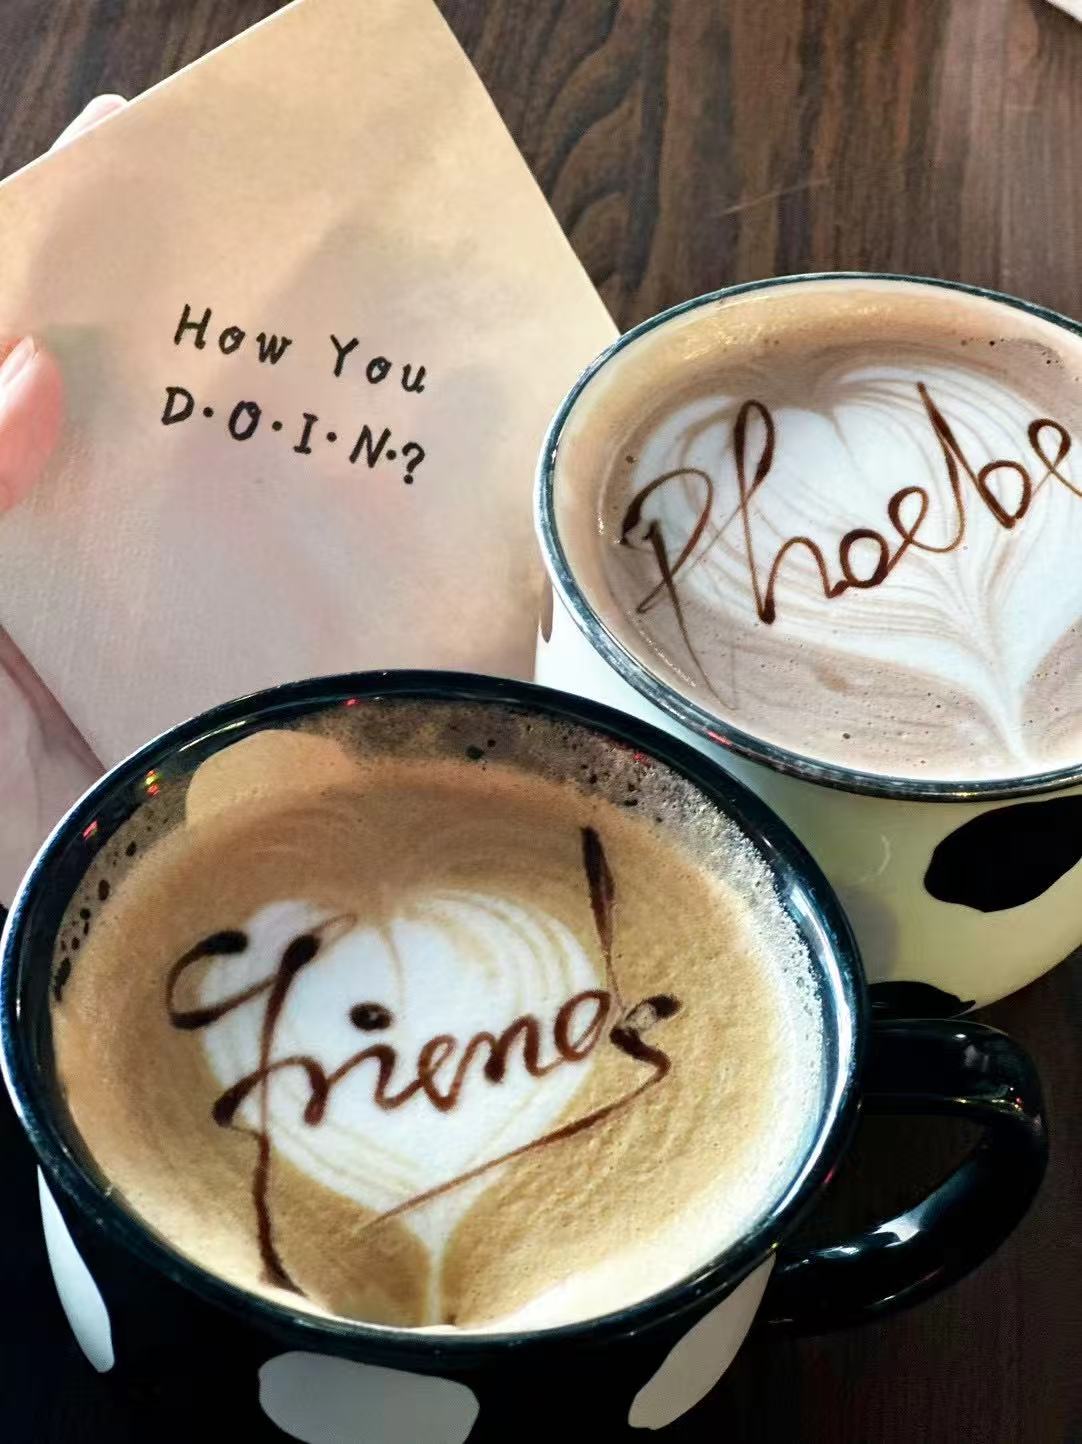 How You
D·O·I·N·?
Phoebe
friends